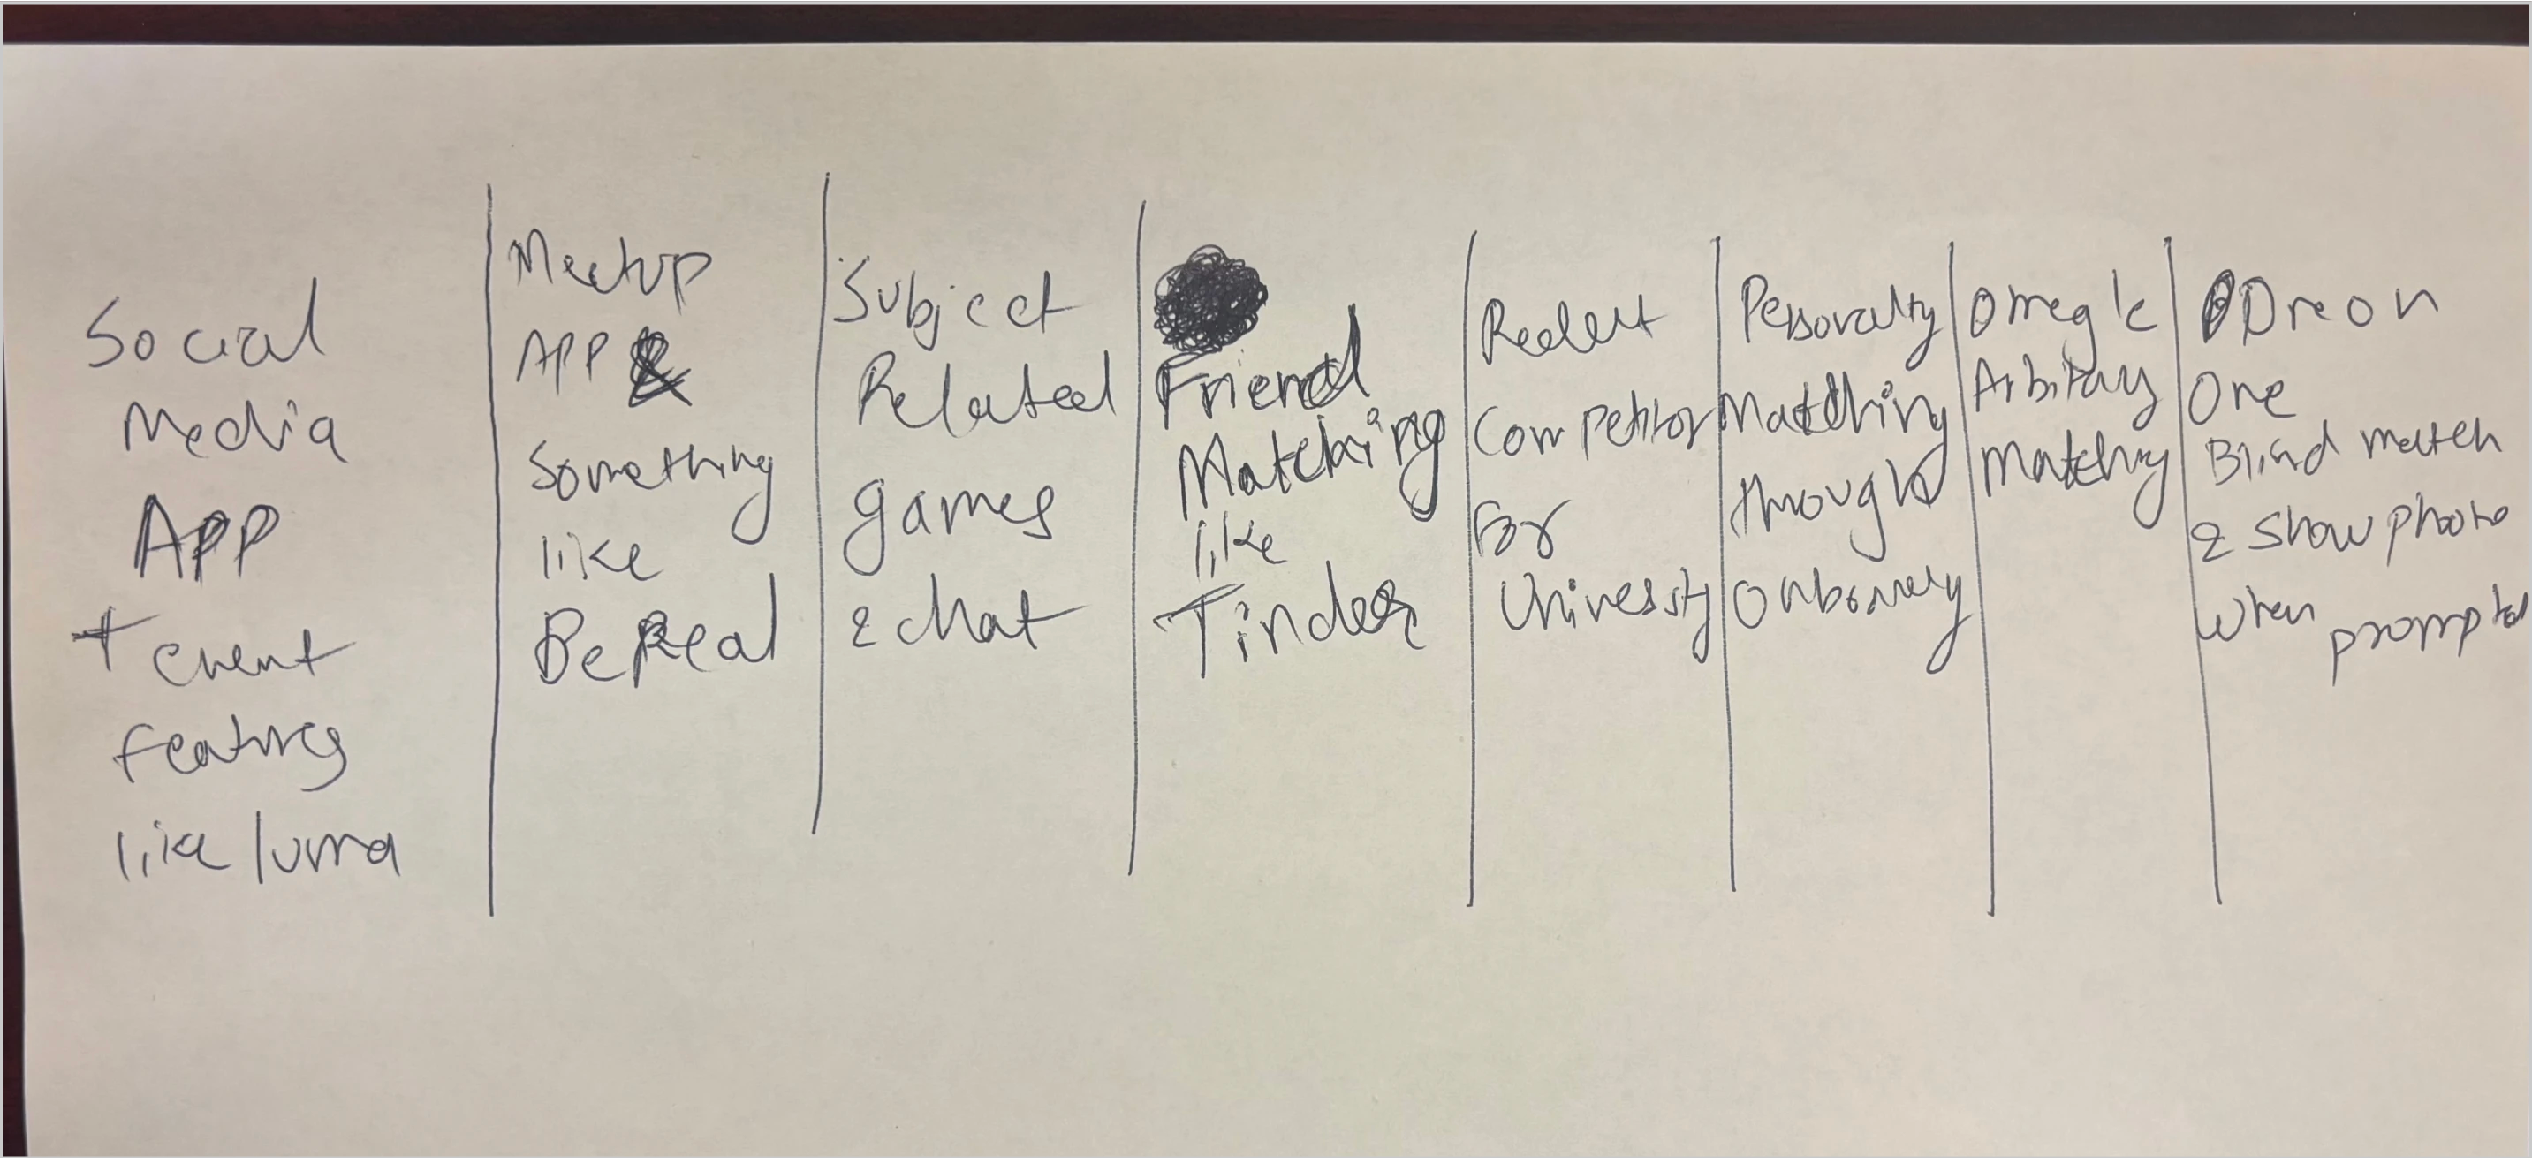 Social
Media
APP
+ event
features
like luma
Meetup
APP
Something
like
BeReal
Subject
Related
games
& chat
Friend
Matching
like
Tinder
Competitor
For
University
Personality
Matching
through
Omegle
Arbitary
Matching
One
Blind match
& show photo
when
prompted